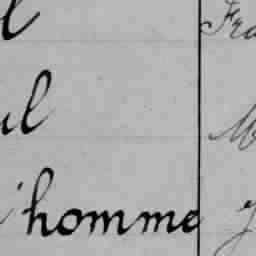 l
ul
'homme
Fra
M
y